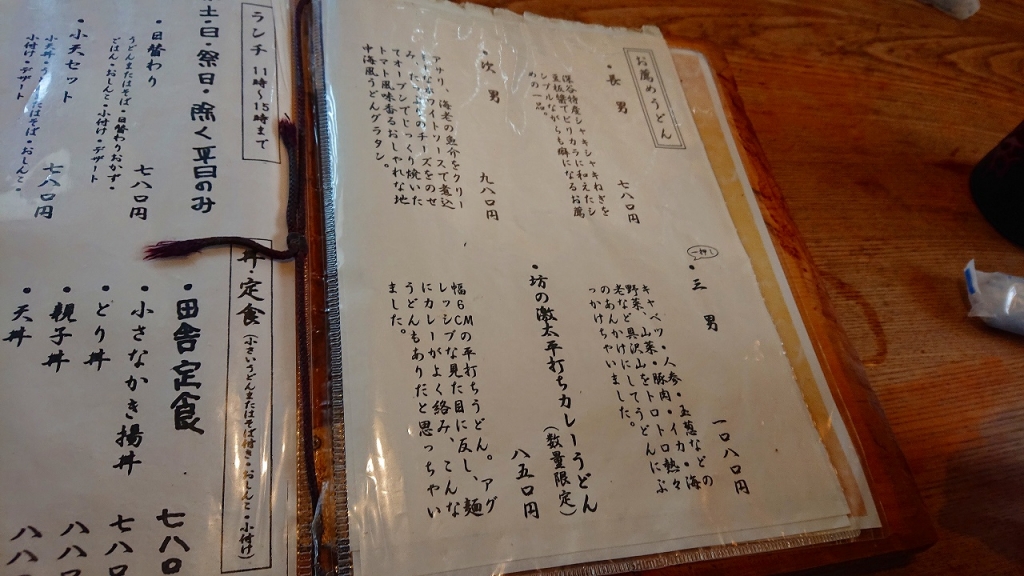 お薦めうどん
・長男 七八〇円
深谷特産シャキシャキねぎを
豆板醤でピリカラに和えたシ
ンプルながらも癖になるお薦
めの一品。
・次男 九八〇円
アサリ、海老の魚介をクリー
ホワイトソースで煮込
み、
チーズをのせ
てオーブンでじっくり焼いた
トマト風味香るおしゃれな地
中海風うどんグラタン。
一押!
・三男 一〇八〇円
キャベツ・人参・玉葱などの
野菜、山菜・豚肉・イカ・海
老など具沢山をトロトロ熱々
のあんかけにしてうどんにぶ
っかけちゃいました。
・坊の激太平打ちカレーうどん
(数量限定) 八五〇円
幅6CMの平打ちうどん。アグ
レッシブな見た目に反し、麺
にカレーがよく絡み、こんな
うどんもありだと思っちゃい
ました。
ランチ 11時〜15時まで
土・日・祭日・除く平日のみ
・日替わり 七八〇円
うどんまたはそば・日替わりおかず・
ごはん・おしんこ・小付け・デザート
・小天セット 七八〇円
小天丼・
そば・おしんこ・
小付け・デザート
丼・定食 (小さいうどんまたはそば付き・おしんこ・小付け)
・田舎定食 七八〇
・小さなかき揚丼 七八〇
・とり丼 八
・親子丼 八
・天丼 八